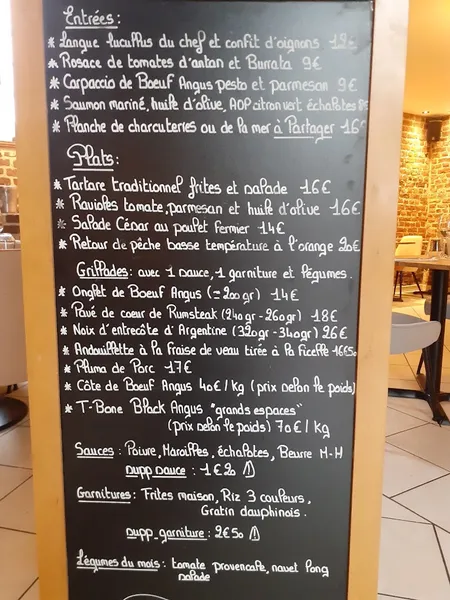 Entrées:
* Langue lucullus du chef et confit d'oignons
* Rosace de tomates d'antan et Burrata 9€
* Carpaccio de Boeuf Angus pesto et parmesan 9€
* Saumon mariné, huile d'olive, AOP citron vert échalotes 8€
* Planche de charcuteries ou de la mer à Partager 16€
Plats:
* Tartare traditionnel frites et salade 16€
* Ravioles tomate, parmesan et huile d'olive 16€
* Salade César au poulet fermier 14€
* Retour de pêche basse température à l'orange 20€
Grillades: avec 1 sauce, 1 garniture et légumes.
* Onglet de Boeuf Angus (=200gr) 14€
* Pavé de coeur de Rumsteak (240gr-260gr) 18€
* Noix d'entrecôte d'Argentine (320gr-340gr) 26€
* Andouillette à la fraise de veau tirée à la ficelle 16€50
* Pluma de Porc 17€
* Côte de Boeuf Angus 40€/kg (prix selon le poids)
* T-Bone Black Angus "grands espaces"
(prix selon le poids) 70€/kg
Sauces: Poivre, Maroilles, échalotes, Beurre M-H
supp sauce: 1€20 ⚠
Garnitures: Frites maison, Riz 3 couleurs,
Gratin dauphinois.
supp garniture: 2€50 ⚠
Légumes du mois: tomate provençale, navet long
salade